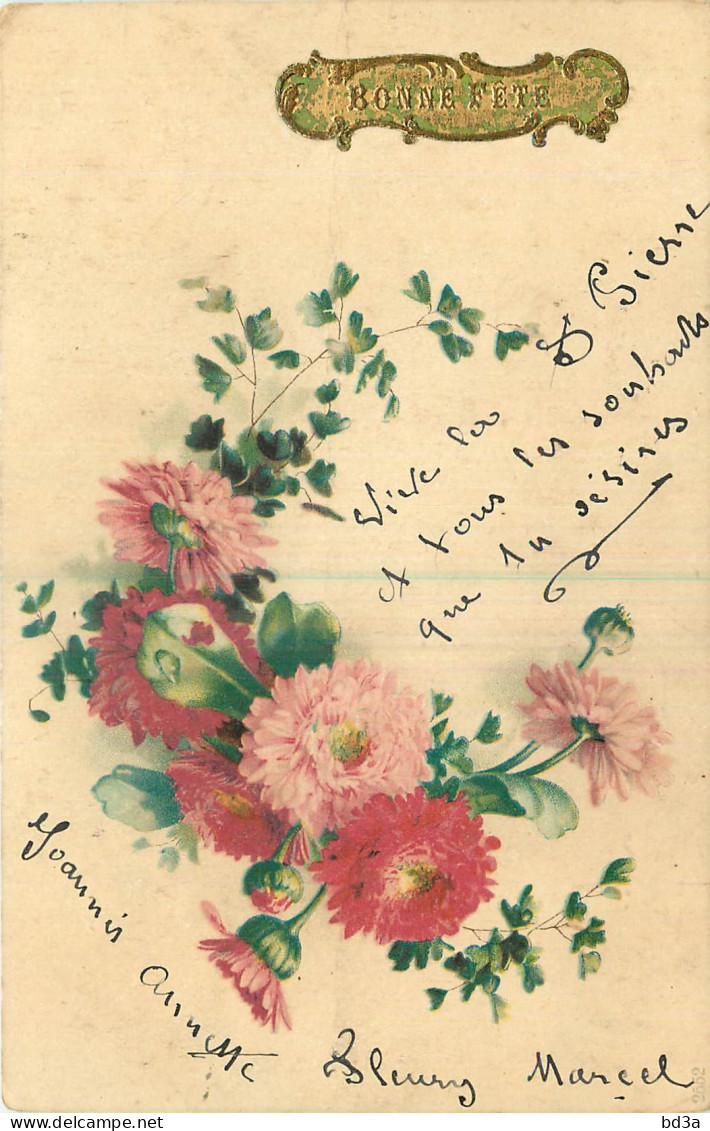 BONNE FÊTE
Vive la St Pierre
et tous les souhaits
que tu désires
Joannès
Annette
Fleury Marcel
2552
delcampe.net
bd3a